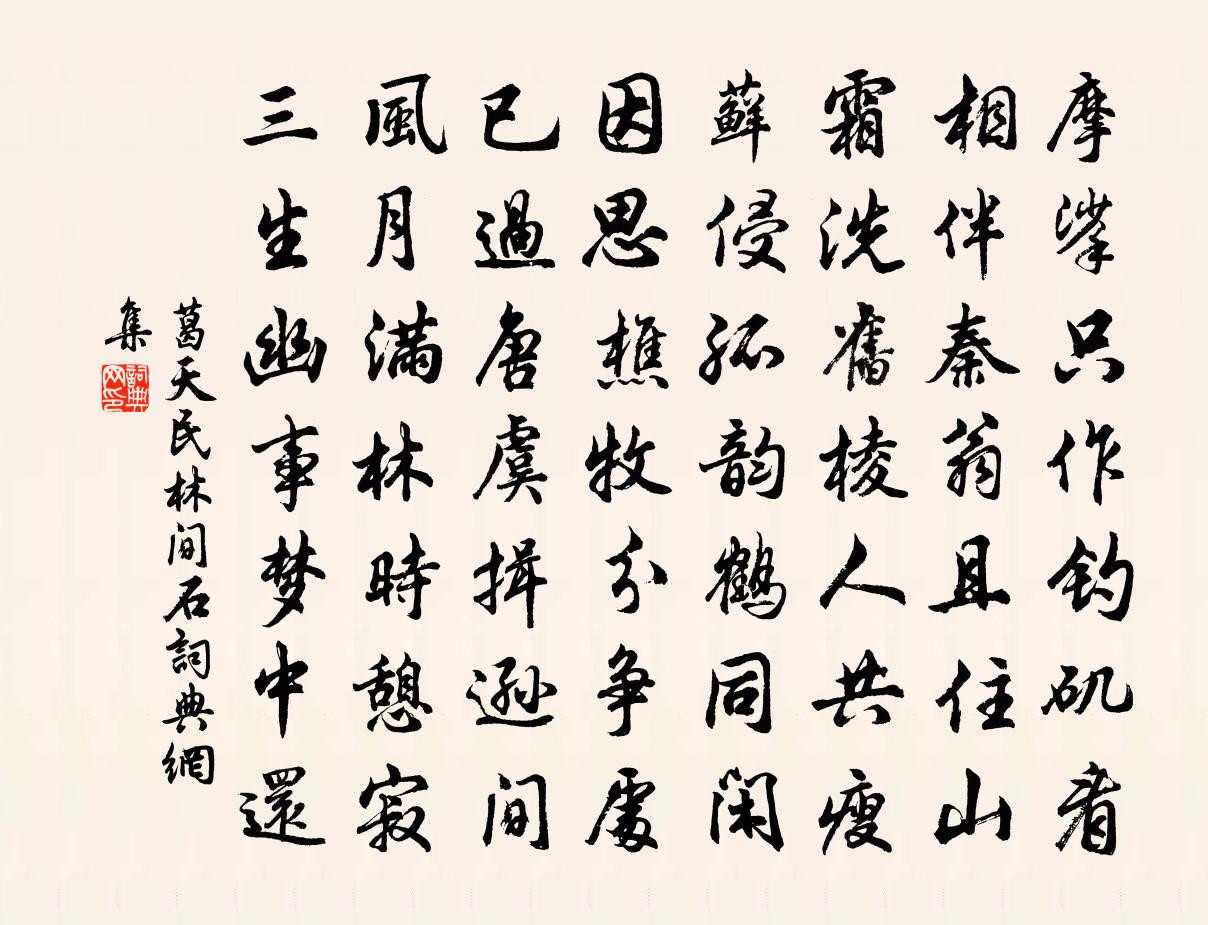 摩挲只作釣矶看
相伴秦翁且住山
霜洗舊棱人共瘦
蘚侵孤韵鶴同闲
因思樵牧分争處
已過唐虞揖逊间
風月满林時憩寂
三生幽事梦中還
葛天民林间石詞典網
集
詞典网印